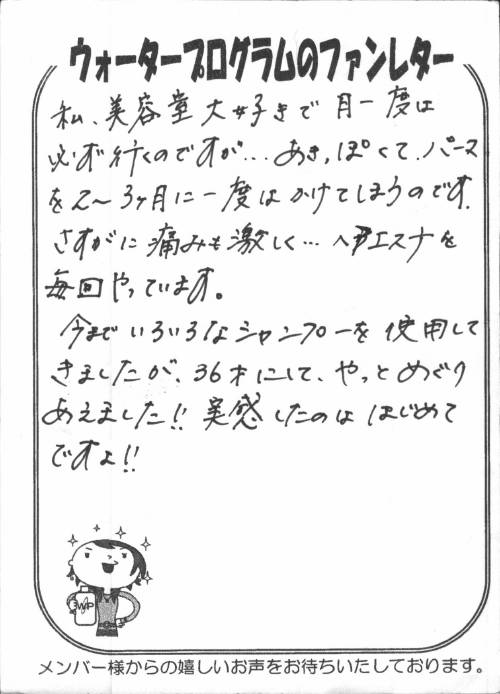 ウォータープログラムのファンレター
私、美容室大好きで月一度は
必ず行くのですが…あきっぽくて、パーマ
を2～3ヶ月に一度はかけてしまうのです。
さすがに痛みも激しく…ヘアエステを
毎回やっています。
今までいろいろなシャンプーを使用して
きましたが、36才にして、やっとめぐり
あえました!!実感したのははじめて
ですよ!!
WP
メンバー様からの嬉しいお声をお待ちいたしております。